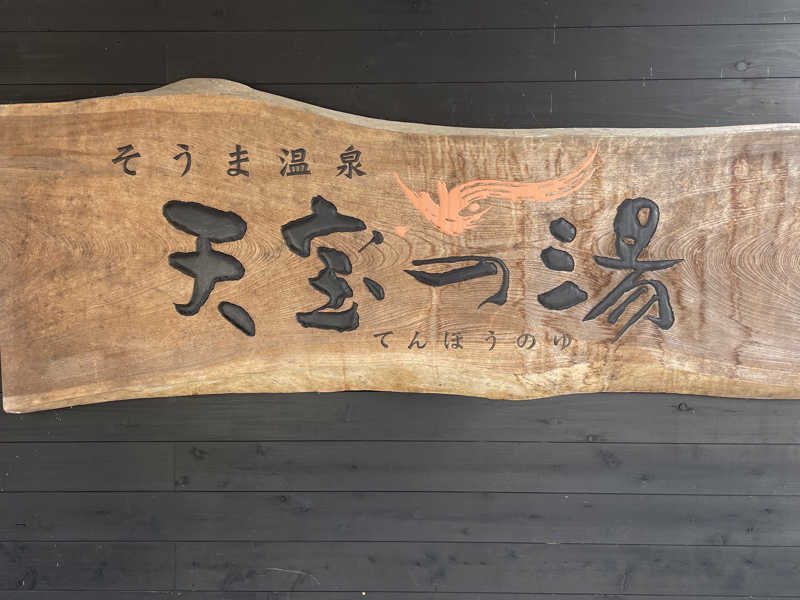 そうま温泉
天宝の湯
てんほうのゆ